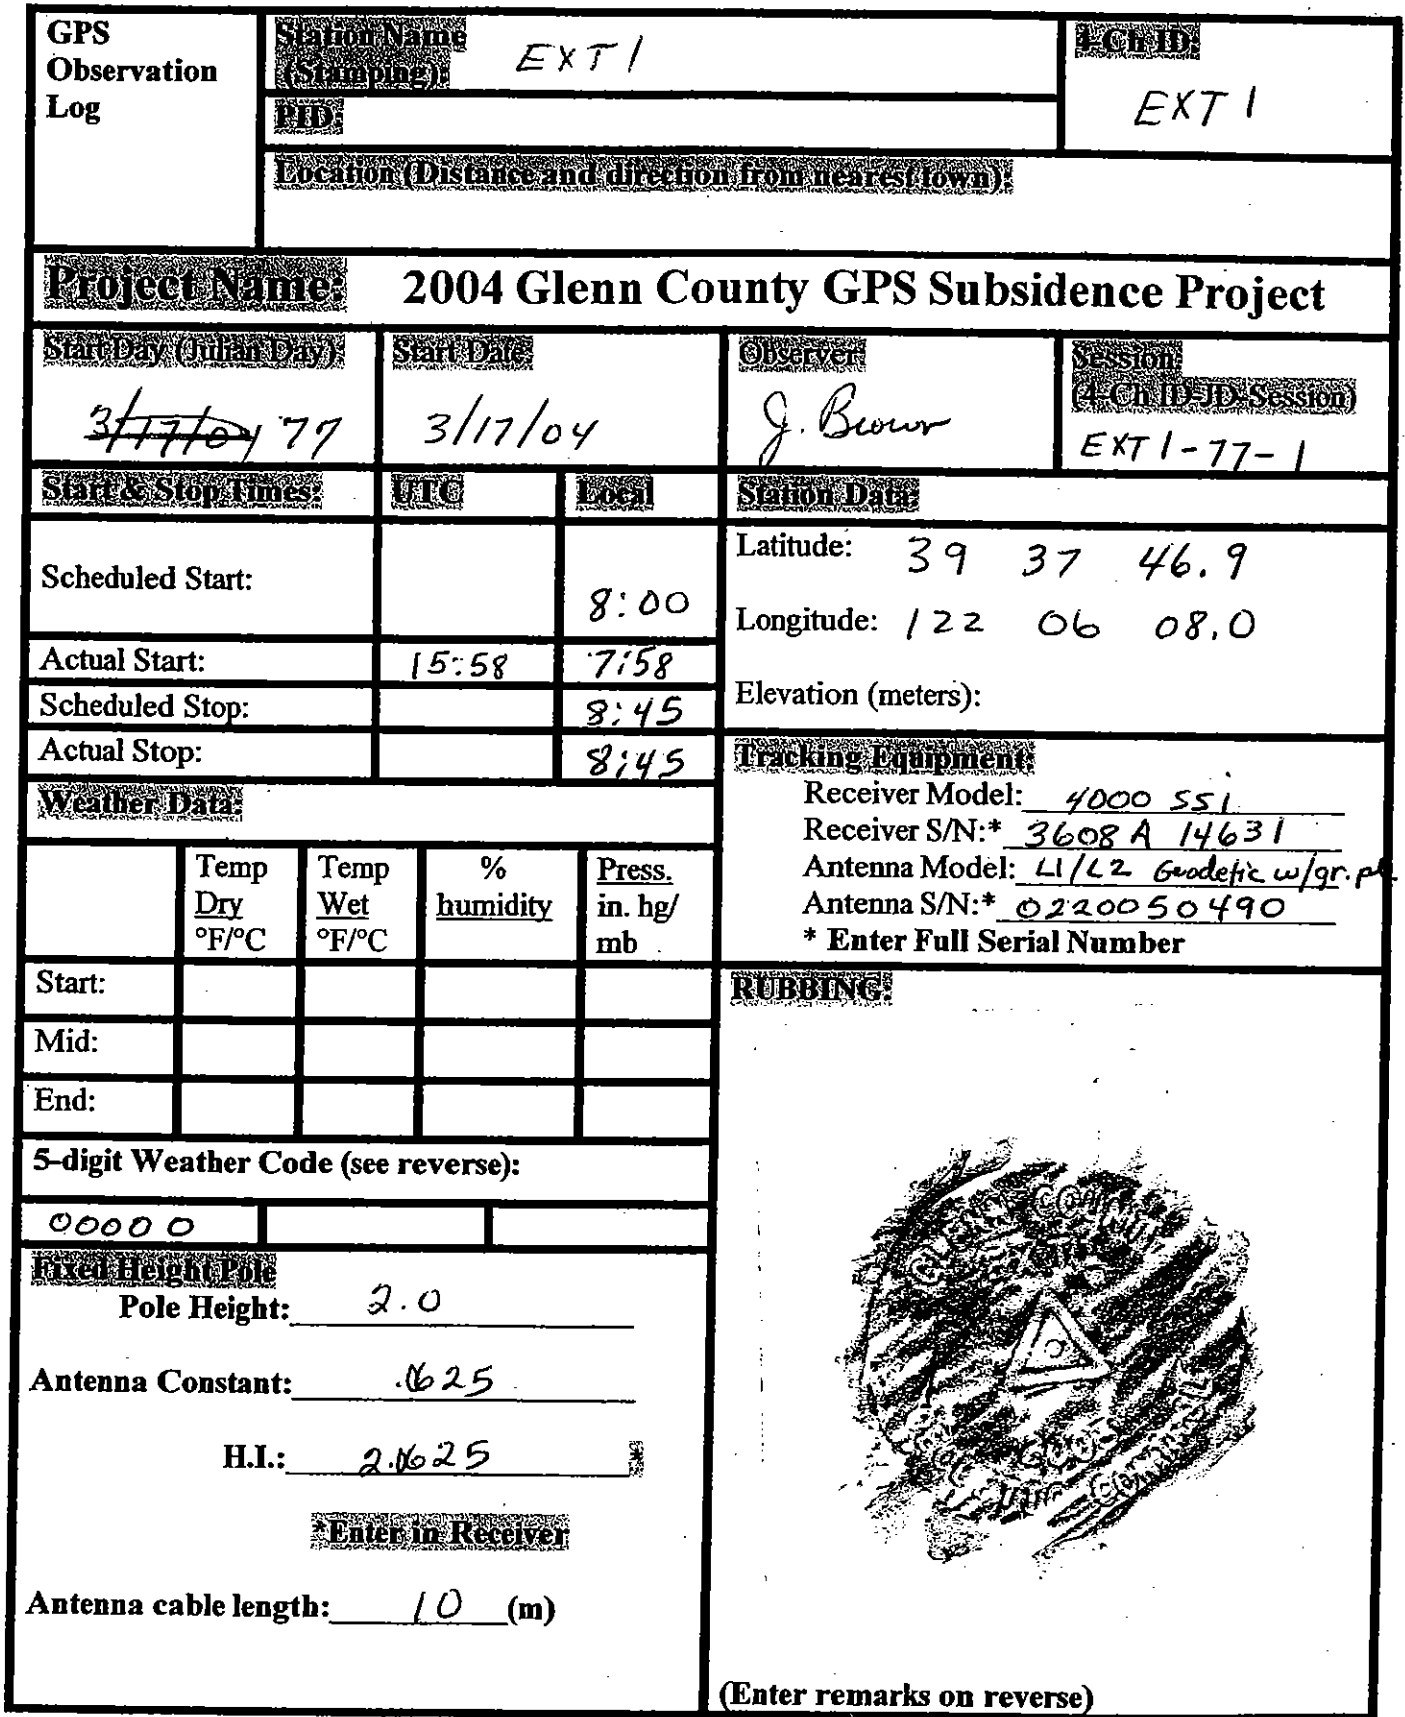 GPS
Observation
Log
Station Name
(Stamping): EXT 1
4-Ch ID:
EXT 1
PID:
Location (Distance and direction from nearest town):
Project Name: 2004 Glenn County GPS Subsidence Project
Start Day (Julian Day)
3/17/04 77
Start Date
3/17/04
Observer
J. Brown
Session:
(4-Ch ID-JD-Session)
EXT 1-77-1
Start & Stop Times: UTC Local
Scheduled Start: 8:00
Actual Start: 15:58 7:58
Scheduled Stop: 8:45
Actual Stop: 8:45
Station Data:
Latitude: 39 37 46.9
Longitude: 122 06 08.0
Elevation (meters):
Tracking Equipment:
Receiver Model: 4000 SSi
Receiver S/N:* 3608 A 14631
Antenna Model: L1/L2 Geodetic w/gr. pl.
Antenna S/N:* 0220050490
* Enter Full Serial Number
Weather Data:
Temp Dry °F/°C
Temp Wet °F/°C
% humidity
Press. in. hg/ mb
Start:
Mid:
End:
5-digit Weather Code (see reverse):
00000
Fixed Height Pole
Pole Height: 2.0
Antenna Constant: .0625
H.I.: 2.0625 *
*Enter in Receiver
Antenna cable length: 10 (m)
RUBBING:
GLENN COUNTY
(Enter remarks on reverse)